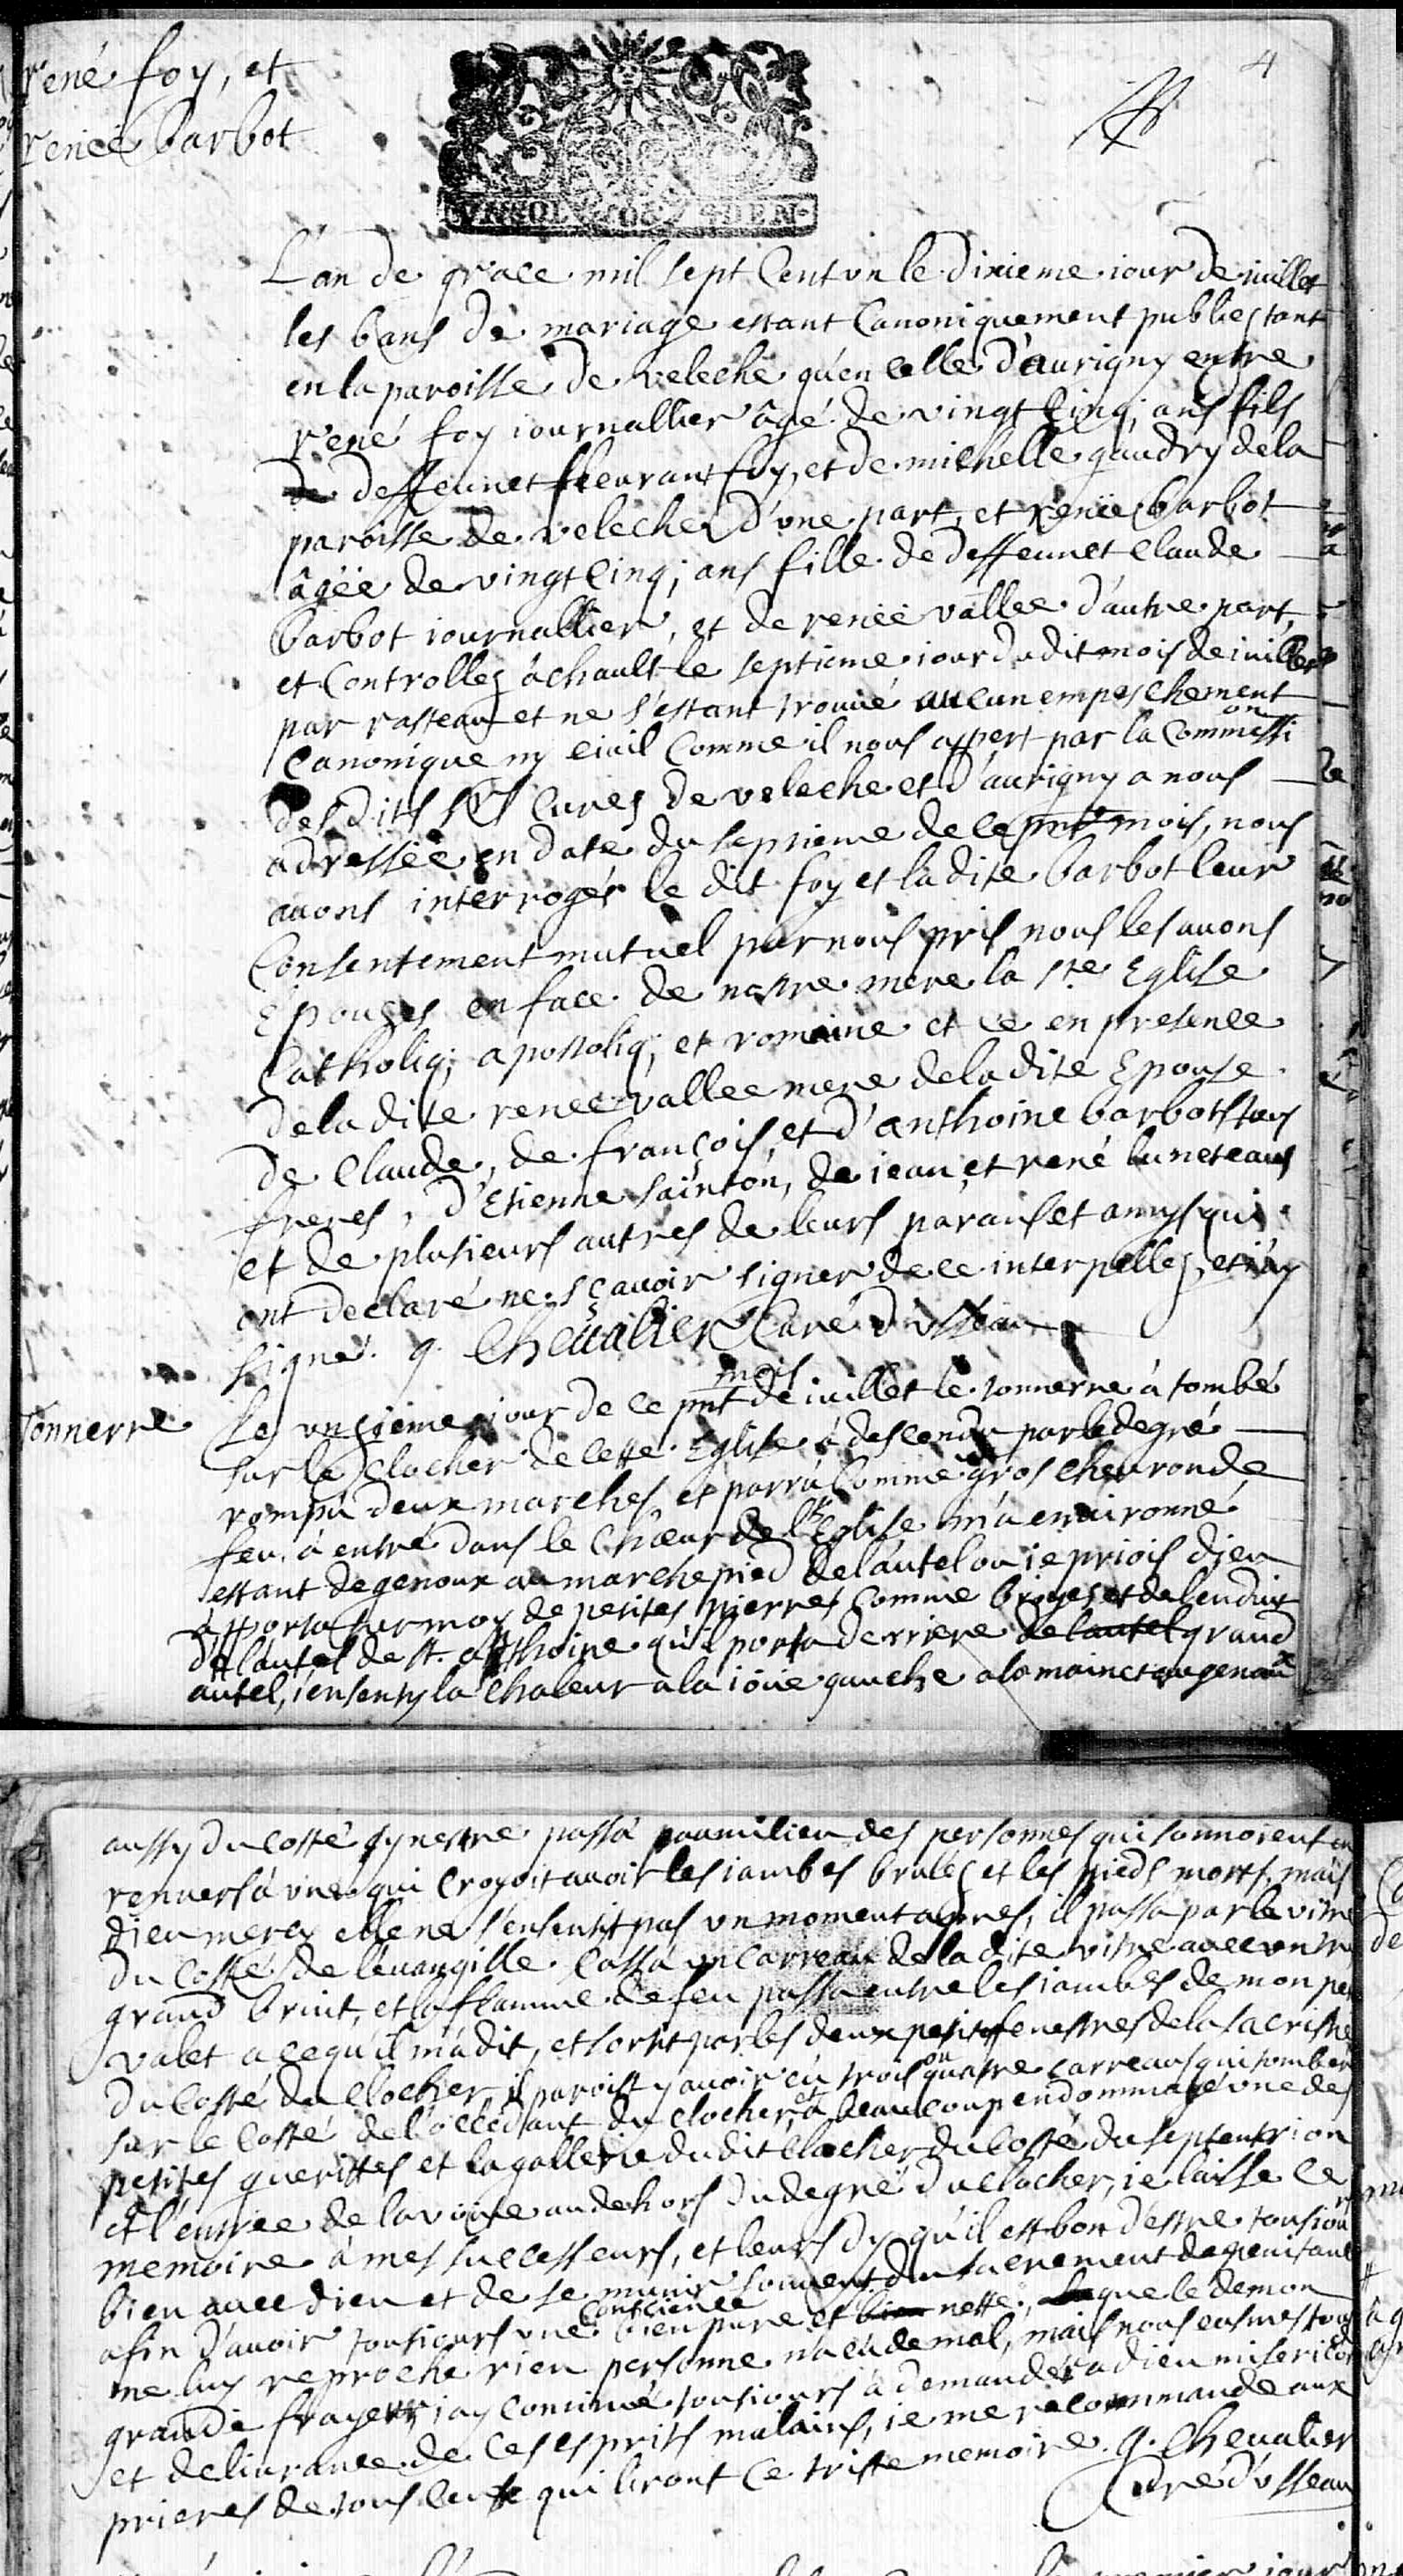 rené foy, et
renée barbot
4
L'an de grace mil sept Cent un le dixieme iour de iuillet
les bans de mariage estant Canoniquement publies tant
en la paroisse de veleche qu'en celle d'aurigny entre
rené foy iournallier âgé de vingt cinq; ans fils
de deffeunct fleurant foy, et de michelle gaudry de la
paroisse de veleche d'une part, et renée barbot
âgée de vingt cinq; ans fille de deffeunct Claude
barbot iournallier, et de renée vallee d'autre part,
et Controllez à chault le septieme iour dudit mois de iuillet
par rasteau et ne s'estant trouué aucun empeschement
Canonique ny ciuil Comme il nous appert par la Commission
desdits srs Curez de veleche et d'aurigny a nous
adressée en date du septieme de ce pnt mois, nous
auons interrogés le dit foy et la dite barbot leur
Consentement mutuel par nous pris nous les auons
Epouzes en face de nostre mere la ste Eglise
Catholiq; apostoliq; et romaine et ce en presence
de la dite renée vallee mere de la dite Epouse
de Claude, de françois, et d'anthoine barbots ses
freres, d'Etienne sainton, de iean et rené luneteaus
et de plusieurs autres de leurs parans et amys qui
ont declaré ne sçauoir signer de ce interpellez, et i'ay
signé. g. Cheualier Curé d'usseau
Tonnerre
Le unzieme iour de ce pnt mois de iuillet le tonnerre à tombé
sur le Clocher de cette Eglise à descendu par le degré
rompu deux marches et parru Comme gros cheuron de
feu à entré dans le Chœur de l'Eglise m'a enuironné
estant de genoux au marchepied de l'autel ou ie priois dieu
apporta sur moy de petites pierres Comme briques et de l'enduit
de l'autel de st. anthoine qu'il porta derriere de lautel grand
autel, i'en senty la chaleur a la ioüe gauche a la main et au genoux
aussy du costé synestre passa au milieu des personnes qui sonnoient en
renuersa une qui croyoit auoir les iambes brulez et les pieds morts, mais
dieu mercy elle ne s'en sentit pas un moment apres, il passa par la vitre
du costé de l'euangille Cassa un Carreau de la dite vitre auec un tres
grand bruit, et la flamme de feu passa entre les iambes de mon pe
valet a ce qu'il m'a dit, et sortit par les deux petites fenestres de la sacristie
du Costé du Clocher, il paroist y auoir eu trois ou quatre carreaus qui tomber
sur le Costé de l'occedant du clocher, et à beaucoup endommagé une des
petites querittes et la gallerie dudit Clocher du Costé du septentrion
et l'entrée de la voute au dehors du degré du clocher, ie laisse ce
memoire à mes successeurs, et leurs dy qu'il est bon d'estre tousiours
bien auec dieu et de se munir souuent du sacrement de penitance
afin d'auoir tousiours une Conscience bien pure et bien nette, que le demon
ne luy reproche rien personne n'a eu de mal, mais nous eusmes tous
grande frayeur iay continué tousiours à demander a dieu misericor
et deliurance de ces esprits malains, ie me recommande aux
prieres de tous ceux qui liront ce triste memoire. g. Cheualier
Curé d'usseau